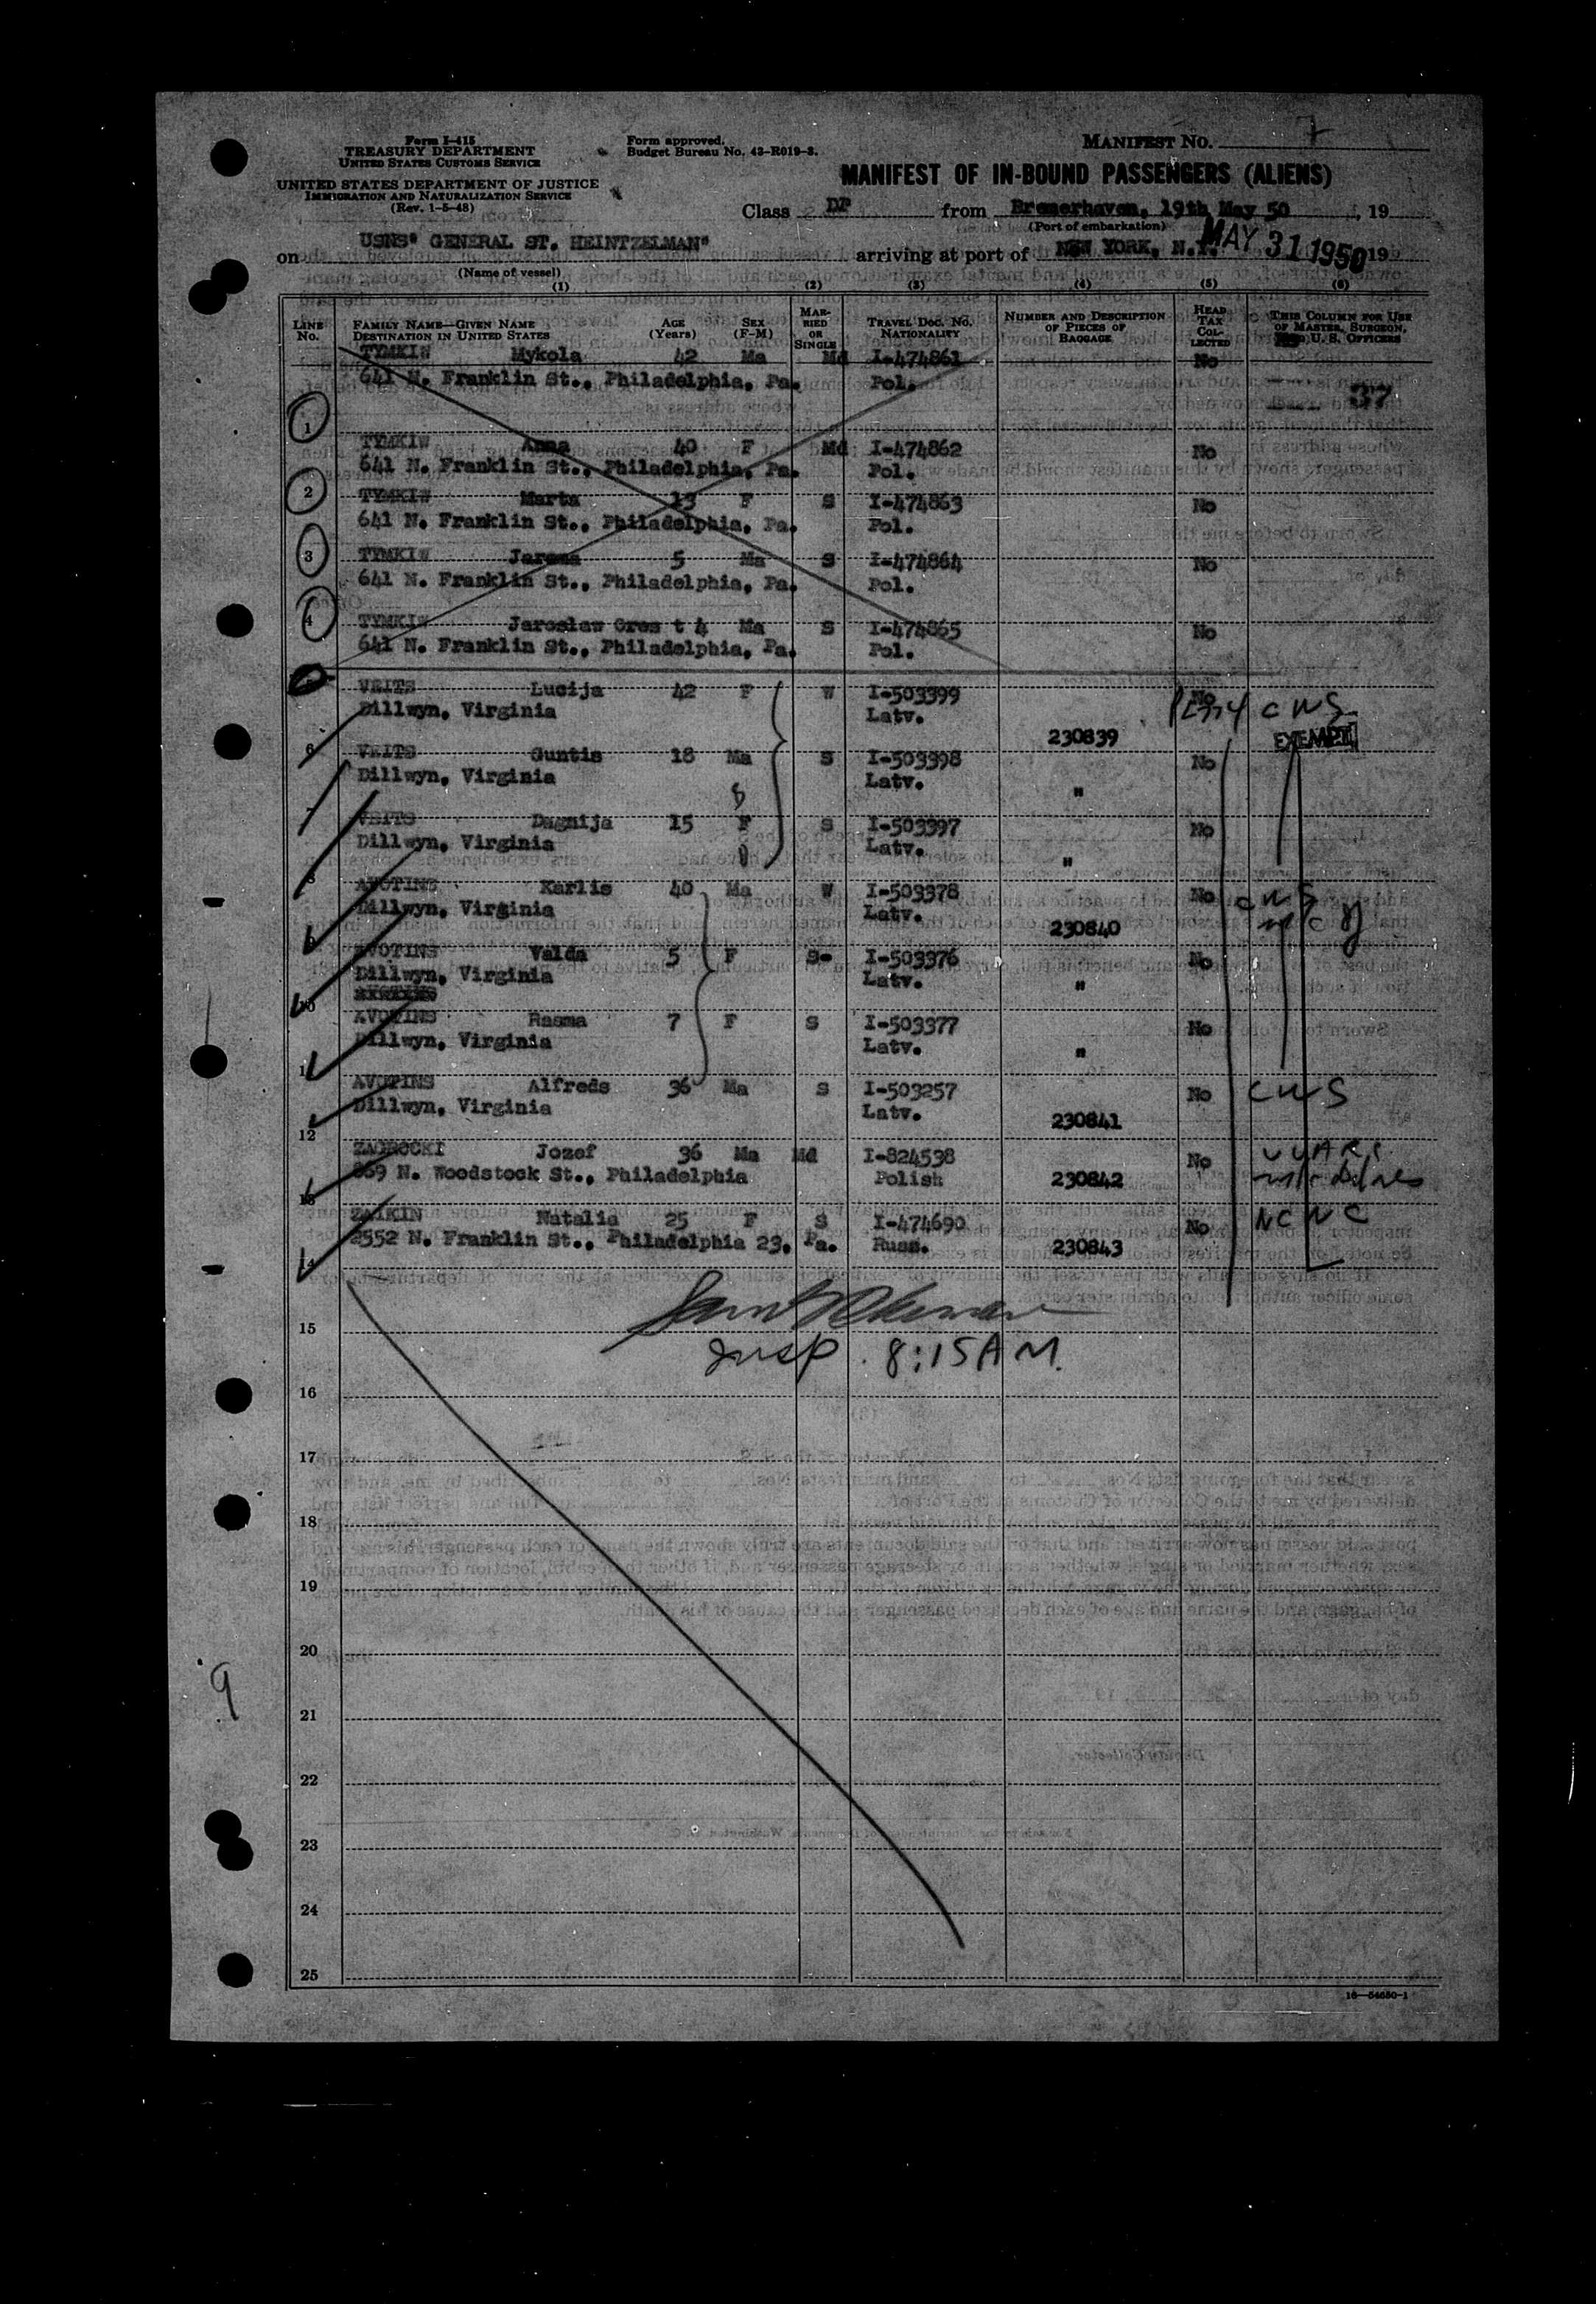 Form I-415
TREASURY DEPARTMENT
UNITED STATES CUSTOMS SERVICE
UNITED STATES DEPARTMENT OF JUSTICE
IMMIGRATION AND NATURALIZATION SERVICE
(Rev. 1-5-48)
Form approved.
Budget Bureau No. 43-R019-3.
MANIFEST NO. 7
MANIFEST OF IN-BOUND PASSENGERS (ALIENS)
Class DP from Bremerhaven, 19th May 50, 19
(Port of embarkation)
on USNS" GENERAL ST. HEINTZELMAN" arriving at port of NEW YORK, N.Y. MAY 31 1950 19
(Name of vessel)
(1) (2) (3) (4) (5) (6)
LINE No. FAMILY NAME—GIVEN NAME DESTINATION IN UNITED STATES AGE (Years) SEX (F-M) MARRIED OR SINGLE TRAVEL DOC. NO. NATIONALITY NUMBER AND DESCRIPTION OF PIECES OF BAGGAGE HEAD TAX COLLECTED THIS COLUMN FOR USE OF MASTER, SURGEON, U. S. OFFICERS
TYMKIW Mykola 42 Ma Md I-474861 No
641 N. Franklin St., Philadelphia, Pa. Pol. 37
1
TYMKIW Anna 40 F Md I-474862 No
641 N. Franklin St., Philadelphia, Pa. Pol.
2
TYMKIW Marta 13 F S I-474863 No
641 N. Franklin St., Philadelphia, Pa. Pol.
3
TYMKIW Jarema 5 Ma S I-474864 No
641 N. Franklin St., Philadelphia, Pa. Pol.
4
TYMKIW Jaroslaw Ores t 4 Ma S I-474865 No
641 N. Franklin St., Philadelphia, Pa. Pol.
VEITS Lucija 42 F W I-503399 No CWS
Dillwyn, Virginia Latv. 230839 EXEMPT
6
VEITS Guntis 18 Ma S I-503398 No
Dillwyn, Virginia Latv. "
7
VEITS Dagnija 15 F S I-503397 No
Dillwyn, Virginia Latv. "
8
AVOTINS Karlis 40 Ma W I-503378 No CWS
Dillwyn, Virginia Latv. 230840
9
AVOTINS Valda 5 F S- I-503376 No
Dillwyn, Virginia Latv. "
10
AVOTINS Rasma 7 F S I-503377 No
Dillwyn, Virginia Latv. "
11
AVOTINS Alfreds 36 Ma S I-503257 No CWS
Dillwyn, Virginia Latv. 230841
12
ZAGROCKI Jozef 36 Ma Md I-824538 No
869 N. Woodstock St., Philadelphia Polish 230842
13
ZAIKIN Natalia 25 F S I-474690 No NCWC
2552 N. Franklin St., Philadelphia 23, Pa. Russ. 230843
14
15
Insp. 8:15 AM.
16
17
18
19
20
9
21
22
23
24
25
16—54650-1